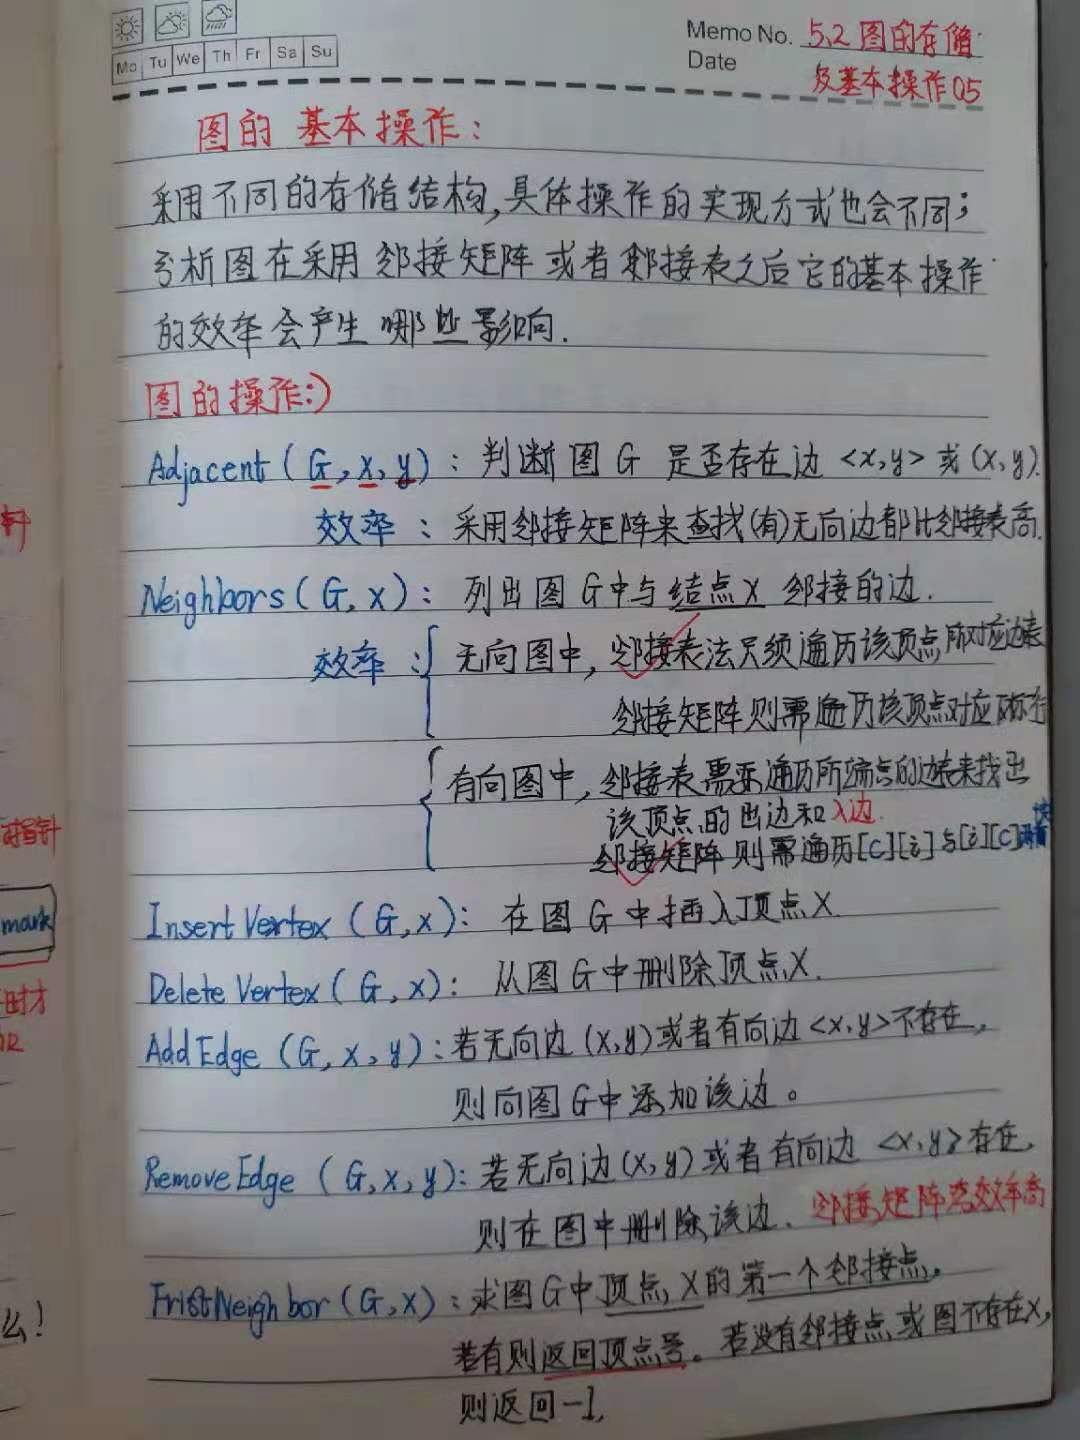 Memo No. 5.2 图的存储
Mo Tu We Th Fr Sa Su
Date 及基本操作 05
图的 基本操作：
采用不同的存储结构,具体操作的实现方式也会不同；
分析图在采用 邻接矩阵 或者 邻接表之后它的基本操作
的效率会产生 哪些影响.
图的操作:)
Adjacent ( G, x, y )：判断图 G 是否存在边 <x,y> 或 (x,y).
效率：采用邻接矩阵来查找(有)无向边都比邻接表高.
Neighbors ( G, x )：列出图 G中与结点X 邻接的边.
效率：无向图中, 邻接表法只须遍历该顶点所对应边表
邻接矩阵则需遍历该顶点对应
有向图中, 邻接表需要遍历所 的边表来找出
该顶点的出边和入边.
邻接矩阵则需遍历[c][i]与[i][c]
Insert Vertex ( G, x )：在图 G 中插入顶点 X.
Delete Vertex ( G, x )：从图 G中删除顶点X.
Add Edge ( G, x, y )：若无向边 (x,y)或者有向边<x,y>不存在,
则向图 G中添加该边。
Remove Edge ( G, x, y )：若无向边(x,y)或者有向边 <x,y>存在,
则在图中删除该边. 邻接矩阵 效率高
FristNeighbor ( G, x )：求图 G中顶点 X的第一个邻接点。
若有则返回顶点号。若没有邻接点或图不存在X,
则返回-1.
针
指针
mark
时才
么！